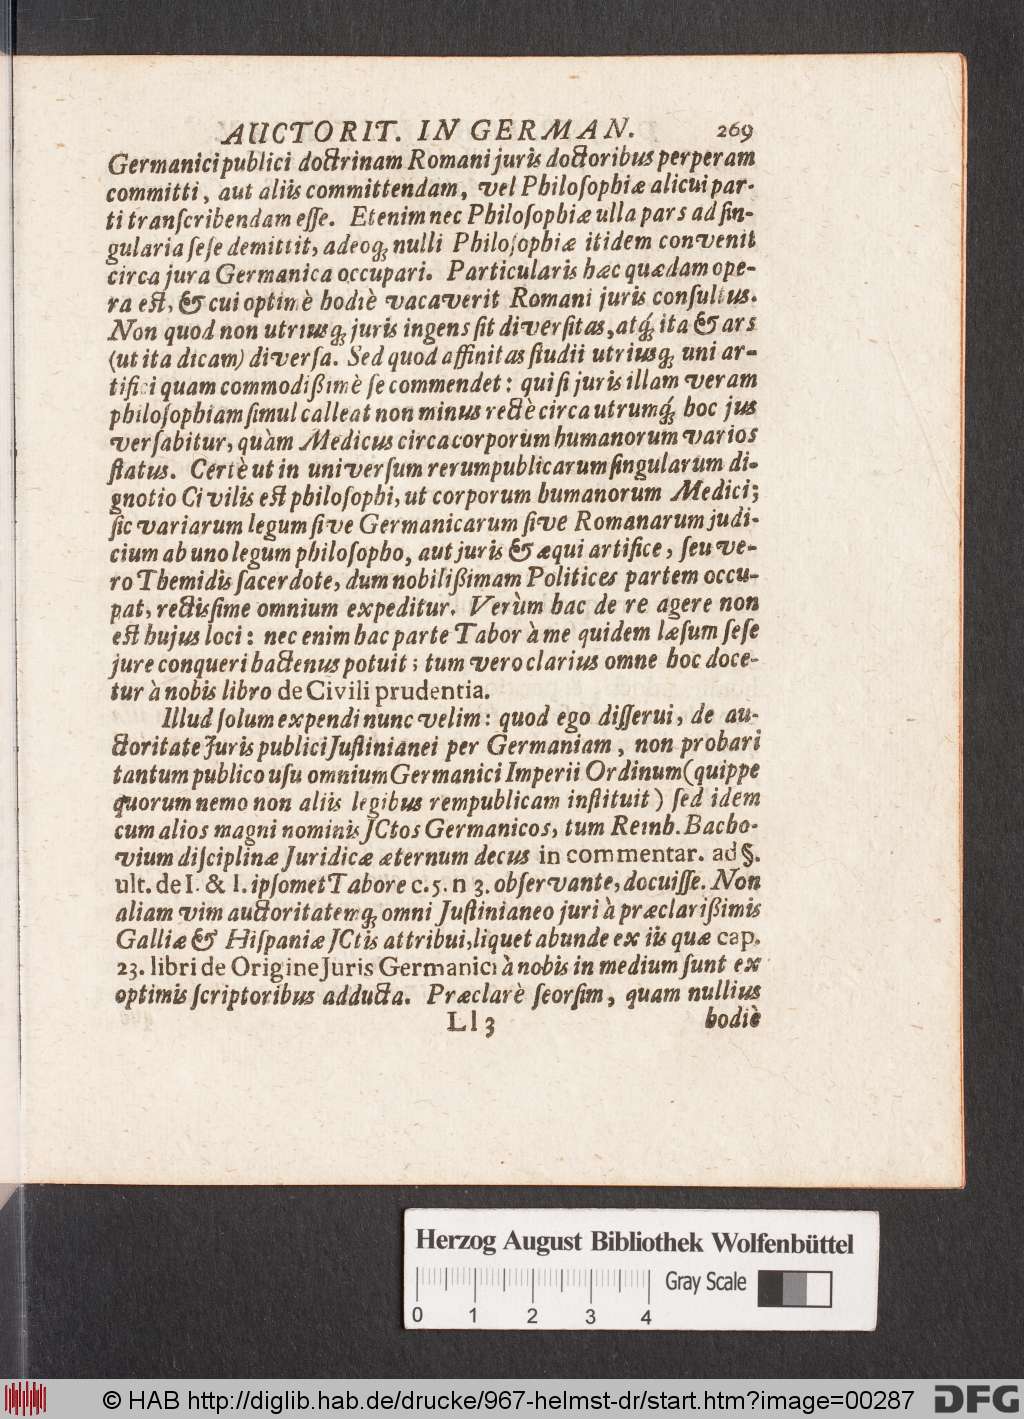 AUCTORIT. IN GERMAN. 269
Germanici publici doctrinam Romani juris doctoribus perperam
committi, aut aliis committendam, vel Philoſophiæ alicui par-
ti tranſcribendam eſſe. Etenim nec Philoſophiæ ulla pars ad ſin-
gularia ſeſe demittit, adeoq́ nulli Philoſophiæ itidem convenit
circa jura Germanica occupari. Particularis hæc quædam ope-
ra eſt, & cui optimè hodiè vacaverit Romani juris conſultus.
Non quod non utriusq́ juris ingens ſit diverſitas, atq́ ita & ars
(ut ita dicam) diverſa. Sed quod affinitas ſtudii utriusq́ uni ar-
tifici quam commodißimè ſe commendet: qui ſi juris illam veram
philoſophiam ſimul calleat non minus rectè circa utrumq́ hoc jus
verſabitur, quàm Medicus circa corporum humanorum varios
ſtatus. Certè ut in univerſum rerumpublicarum ſingularum di-
gnotio Civilis eſt philoſophi, ut corporum humanorum Medici;
ſic variarum legum ſive Germanicarum ſive Romanarum judi-
cium ab uno legum philoſopho, aut juris & æqui artifice, ſeu ve-
ro Themidis ſacerdote, dum nobilißimam Politices partem occu-
pat, rectisſime omnium expeditur. Verùm hac de re agere non
eſt hujus loci: nec enim hac parte Tabor à me quidem læſum ſeſe
jure conqueri hactenus potuit; tum vero clarius omne hoc doce-
tur à nobis libro de Civili prudentia.
Illud ſolum expendi nunc velim: quod ego diſſerui, de au-
ctoritate Juris publici Juſtinianei per Germaniam, non probari
tantum publico uſu omnium Germanici Imperii Ordinum (quippe
quorum nemo non aliis legibus rempublicam inſtituit) ſed idem
cum alios magni nominis JCtos Germanicos, tum Reinh. Bacho-
vium diſciplinæ Juridicæ æternum decus in commentar. ad §.
ult. de I. & I. ipſomet Tabore c. 5. n 3. obſervante, docuiſſe. Non
aliam vim auctoritatemq́ omni Juſtinianeo juri à præclarißimis
Galliæ & Hiſpaniæ JCtis attribui, liquet abunde ex iis quæ cap.
23. libri de Origine Juris Germanici à nobis in medium ſunt ex
optimis ſcriptoribus adducta. Præclarè ſeorſim, quam nullius
Ll 3 hodiè
Herzog August Bibliothek Wolfenbüttel
Gray Scale
0 1 2 3 4
© HAB http://diglib.hab.de/drucke/967-helmst-dr/start.htm?image=00287 DFG